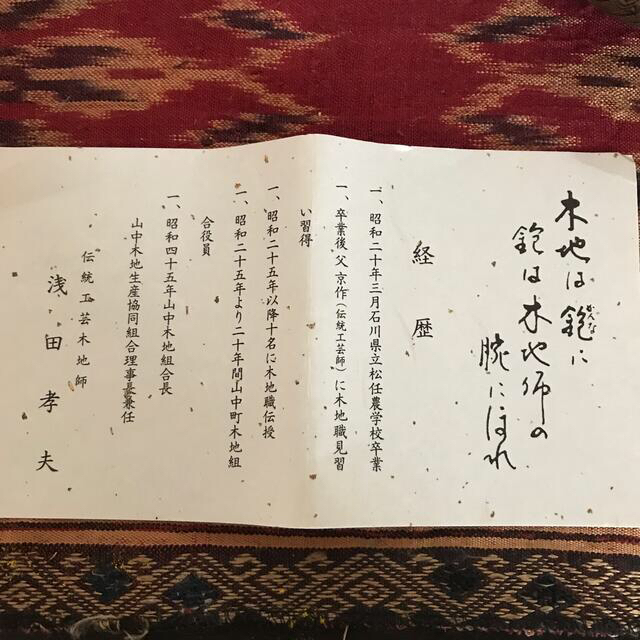 木地は鉋に
かんな
鉋は木地師の
腕にほれ
経歴
一、昭和二十年三月石川県立松任農学校卒業
一、卒業後父京作(伝統工芸師)に木地職見習
い習得
一、昭和二十五年以降十名に木地職伝授
一、昭和二十五年より二十年間山中町木地組
合役員
一、昭和四十五年山中木地組合長
山中木地生産協同組合理事長兼任
伝統工芸木地師
浅田孝夫